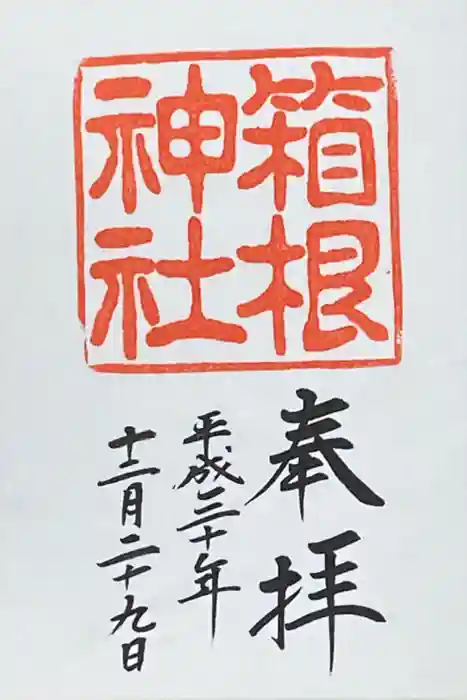 箱根
神社
奉拝
平成三十年
十二月二十九日